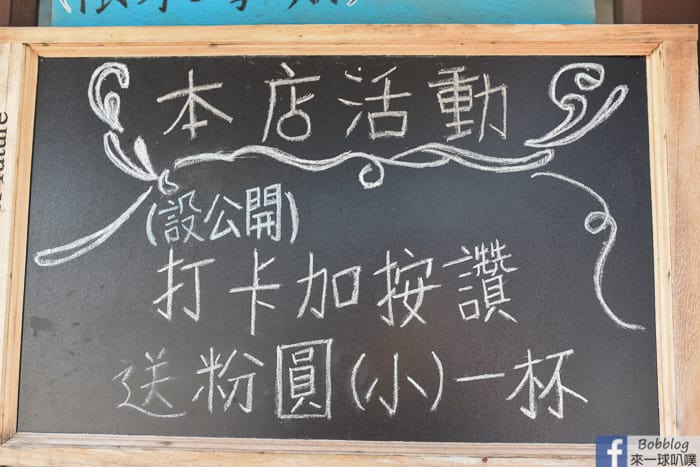 本店活動
(設公開)
打卡加按讚
送粉圓(小)一杯
Bobblog
來一球叭噗